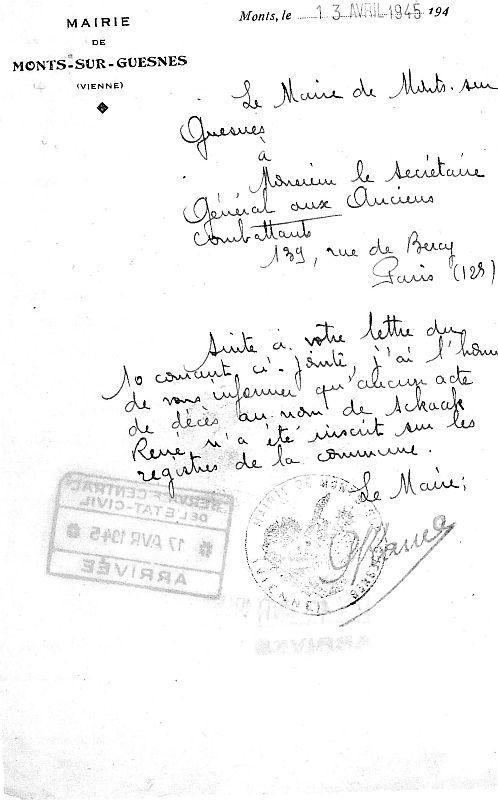 MAIRIE
DE
MONTS-SUR-GUESNES
(VIENNE)
Monts, le 13 AVRIL 1945 194
Le Maire de Monts-sur
Guesnes
à
Monsieur le secrétaire
Général aux Anciens
Combattants
139, rue de Bercy
Paris (12è)
Suite à votre lettre du
10 courant ci-jointe, j'ai l'honn
de vous informer qu'aucun acte
de décès au nom de Schaak
René n'a été inscrit sur les
registres de la commune.
Le Maire;
SERVICE CENTRAL
DE L'ETAT-CIVIL
17 AVR 1945
ARRIVÉE
MAIRIE DE MONTS-SUR-GUESNES
(VIENNE)
ARRIVÉE